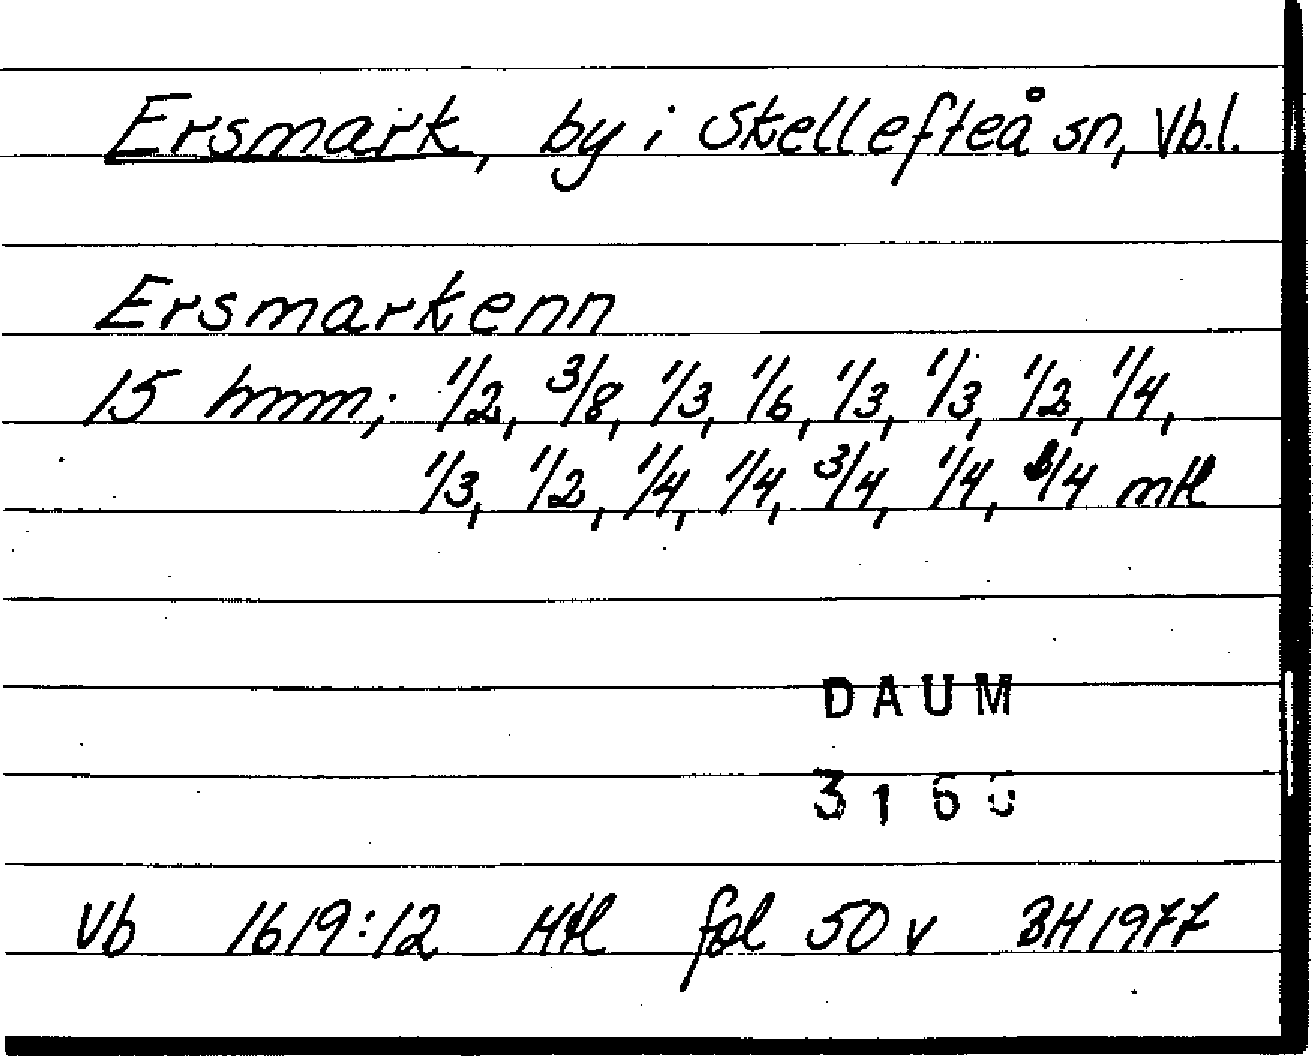 Ersmark, by i Skellefteå sn, Vb.l.
Ersmarkenn
15 hmm; 1/2, 3/8, 1/3, 1/6, 1/3, 1/3, 1/2, 1/4,
1/3, 1/2, 1/4, 1/4, 3/4, 1/4, /4 mtl
DAUM
316
Vb 1619:12 Mtl fol 50 v BH 1977